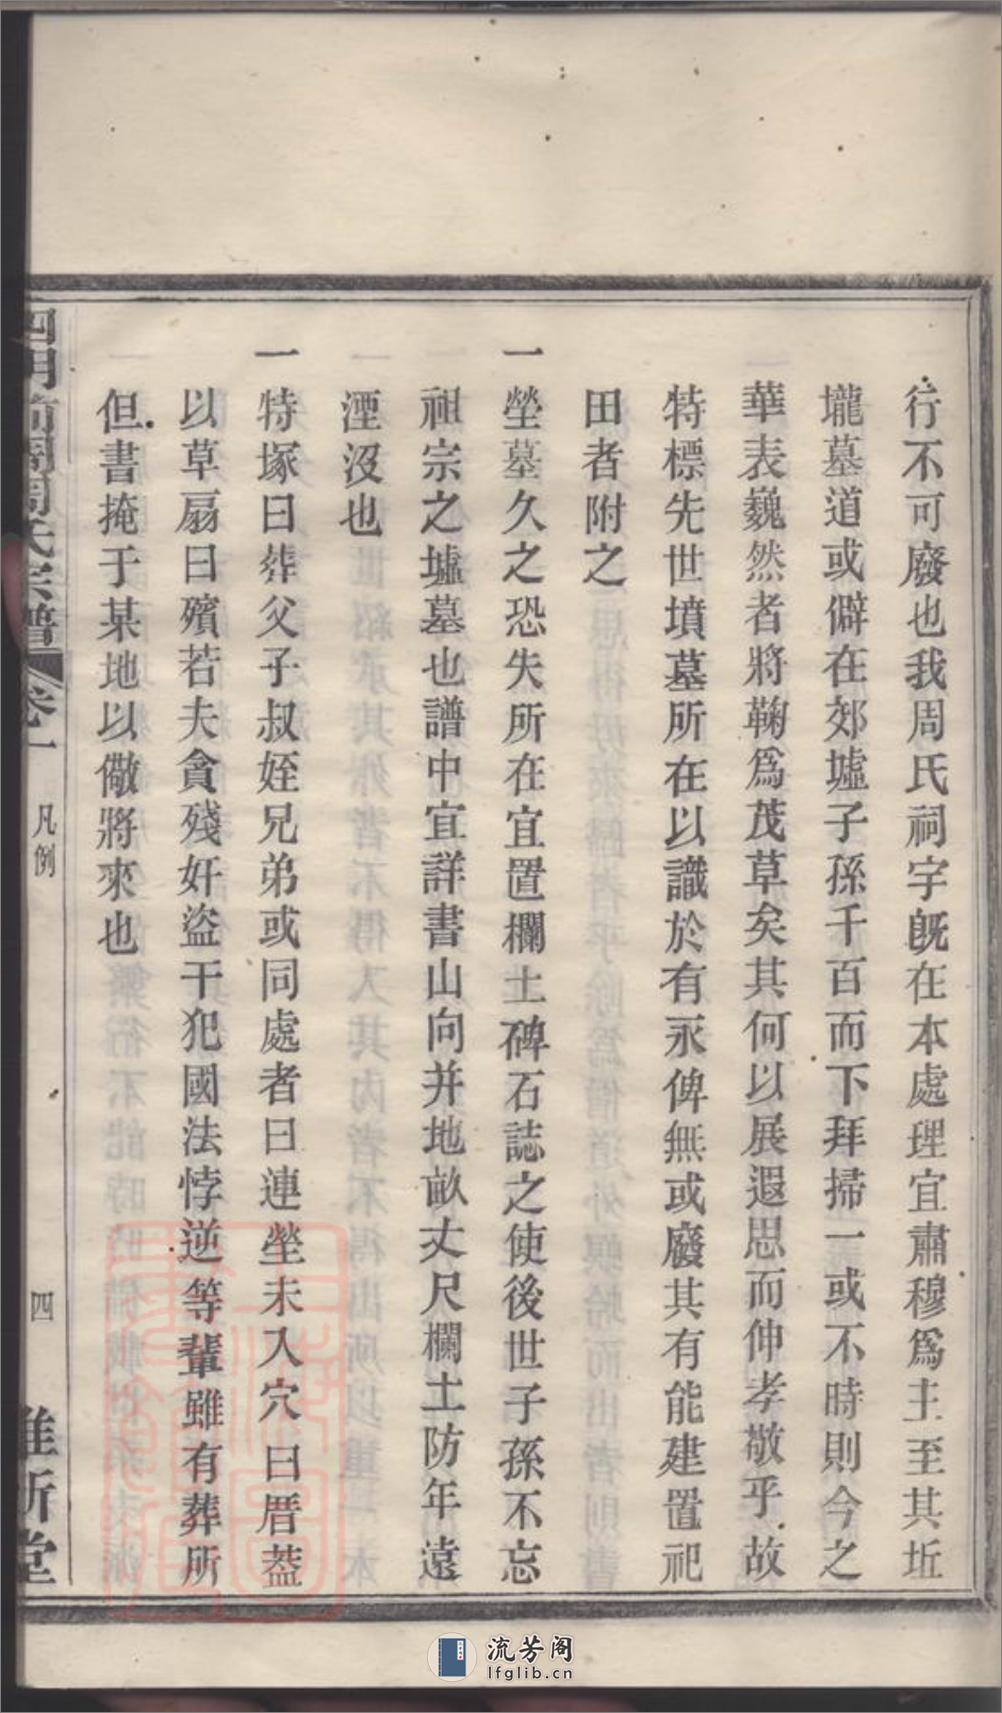 行不可廢也我周氏祠宇旣在本處理宜肅穆爲主至其坵
壠墓道或僻在郊墟子孫千百而下拜掃一或不時則今之
華表巍然者將鞠爲茂草矣其何以展遐思而伸孝敬乎故
特標先世墳墓所在以識於有永俾無或廢其有能建置祀
田者附之
一塋墓久之恐失所在宜置欄土碑石誌之使後世子孫不忘
祖宗之墟墓也譜中宜詳書山向并地畝丈尺欄土防年遠
湮沒也
一特塚曰葬父子叔姪兄弟或同處者曰連塋未入穴曰厝葢
以草扇曰殯若夫貪殘奸盜干犯國法悖逆等輩雖有葬所
但書掩于某地以儆將來也
四明前周周氏宗譜 卷一 凡例 四 惟新堂
流芳阁
lfglib.cn